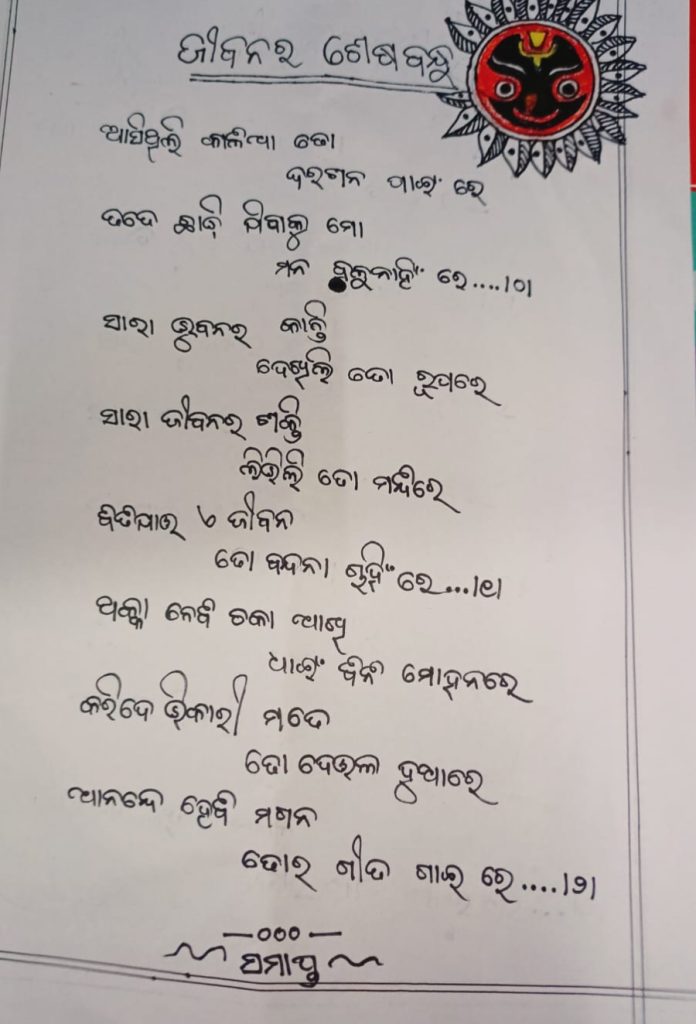 ଜୀବନର ଶେଷବନ୍ଧୁ
ଆସିଥିଲି କାଳିଆ ତୋ
ଦରଶନ ପାଇଁ ରେ
ତତେ ଛାଡ଼ି ଯିବାକୁ ମୋ
ମନ ବୁଲୁନାହିଁ ରେ....।୦।
ସାରା ଭୁବନର କାନ୍ତି
ଦେଖିଲି ତୋ ରୂପରେ
ସାରା ଜୀବନର ଶକ୍ତି
ଲିଭିଲି ତୋ ମନ୍ଦିରେ
ବିତିଯାଉ ଏ ଜୀବନ
ତୋ ବନ୍ଦନା ଗୁହିଁ ରେ...।୧।
ଧକ୍କା ନେବି ଚକା ଆଖି
ଧାଇଁ ବିନି ମୋହନରେ
କରିଦେ ଭିକାରୀ ମତେ
ତୋ ଦେଉଳ ଦୁଆରେ
ଆନନ୍ଦେ ହେବି ମଗନ
ତୋର ଗୀତ ଗାଇ ରେ....।୨।
—୦୦୦—
ସମାପ୍ତ